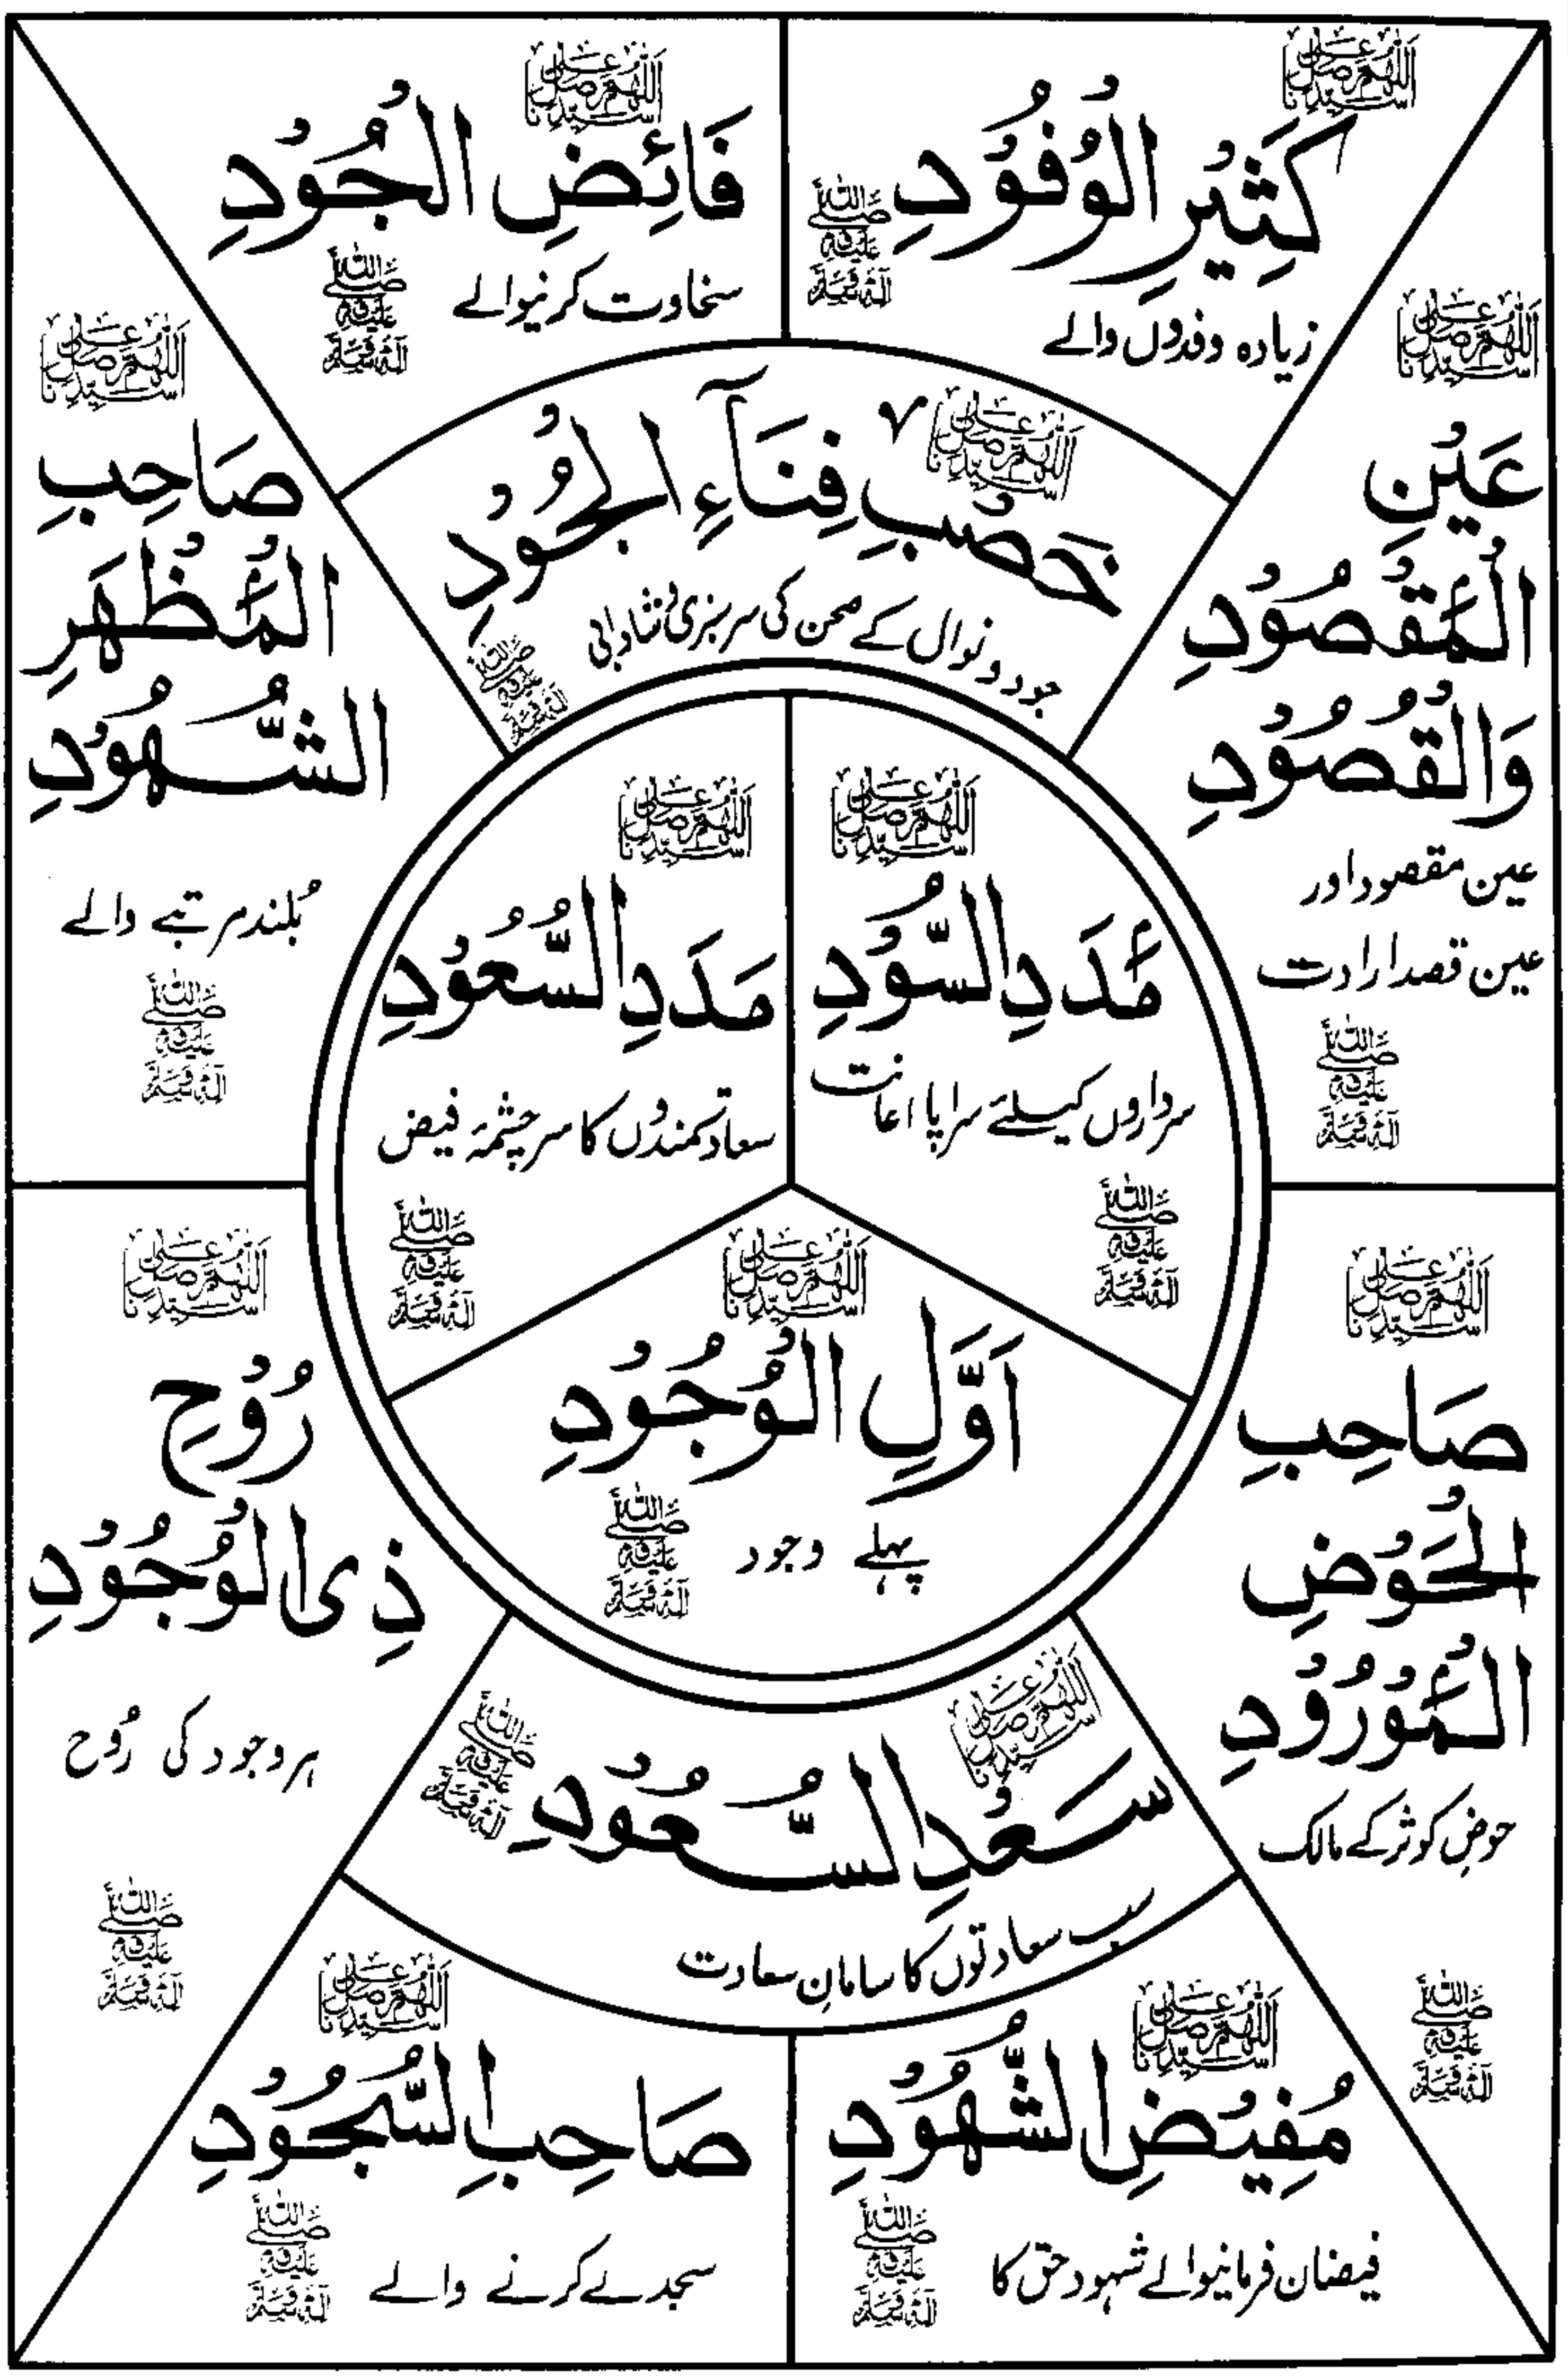 اَللّٰهُمَّ صَلِّ عَلٰى سَيِّدِنَا
كَثِيْرِ الْوُفُوْدِ
صَلَّى اللّٰهُ عَلَيْهِ وَآلِهٖ وَسَلَّمَ
زیادہ وفدوں والے
اَللّٰهُمَّ صَلِّ عَلٰى سَيِّدِنَا
فَائِضِ الْجُوْدِ
صَلَّى اللّٰهُ عَلَيْهِ وَآلِهٖ وَسَلَّمَ
سخاوت کرنیوالے
اَللّٰهُمَّ صَلِّ عَلٰى سَيِّدِنَا
عَيْنِ
الْمَقْصُوْدِ
وَالْقُصُوْدِ
عین مقصود اور
عین قصد ارادت
صَلَّى اللّٰهُ عَلَيْهِ وَآلِهٖ وَسَلَّمَ
اَللّٰهُمَّ صَلِّ عَلٰى سَيِّدِنَا
٧
خَصْبِ فِنَآءِ الْجُوْدِ
جود و نوال کے صحن کی سرسبزی و شادابی
صَلَّى اللّٰهُ عَلَيْهِ وَآلِهٖ وَسَلَّمَ
اَللّٰهُمَّ صَلِّ عَلٰى سَيِّدِنَا
صَاحِبِ
الْمَظْهَرِ
الشُّهُوْدِ
بُلند مرتبے والے
صَلَّى اللّٰهُ عَلَيْهِ وَآلِهٖ وَسَلَّمَ
اَللّٰهُمَّ صَلِّ عَلٰى سَيِّدِنَا
مَدَدِ السُّوْدِ
سرداروں کیلئے سراپا اعانت
صَلَّى اللّٰهُ عَلَيْهِ وَآلِهٖ وَسَلَّمَ
اَللّٰهُمَّ صَلِّ عَلٰى سَيِّدِنَا
مَدَدِ السُّعُوْدِ
سعادتمندوں کا سرچشمۂ فیض
صَلَّى اللّٰهُ عَلَيْهِ وَآلِهٖ وَسَلَّمَ
اَللّٰهُمَّ صَلِّ عَلٰى سَيِّدِنَا
اَوَّلِ الْوُجُوْدِ
پہلے وجود
صَلَّى اللّٰهُ عَلَيْهِ وَآلِهٖ وَسَلَّمَ
اَللّٰهُمَّ صَلِّ عَلٰى سَيِّدِنَا
صَاحِبِ
الْحَوْضِ
الْمَوْرُوْدِ
حوضِ کوثر کے مالک
صَلَّى اللّٰهُ عَلَيْهِ وَآلِهٖ وَسَلَّمَ
اَللّٰهُمَّ صَلِّ عَلٰى سَيِّدِنَا
رُوْحِ
ذِی الْوُجُوْدِ
ہر وجود کی رُوح
صَلَّى اللّٰهُ عَلَيْهِ وَآلِهٖ وَسَلَّمَ
اَللّٰهُمَّ صَلِّ عَلٰى سَيِّدِنَا
سَعْدِ السُّعُوْدِ
صَلَّى اللّٰهُ عَلَيْهِ وَآلِهٖ وَسَلَّمَ
سب سعادتوں کا سامانِ سعادت
اَللّٰهُمَّ صَلِّ عَلٰى سَيِّدِنَا
مُفِيْضِ الشُّهُوْدِ
فیضان فرمانیوالے شہود حق کا
صَلَّى اللّٰهُ عَلَيْهِ وَآلِهٖ وَسَلَّمَ
اَللّٰهُمَّ صَلِّ عَلٰى سَيِّدِنَا
صَاحِبِ السُّجُوْدِ
سجدے کرنے والے
صَلَّى اللّٰهُ عَلَيْهِ وَآلِهٖ وَسَلَّمَ